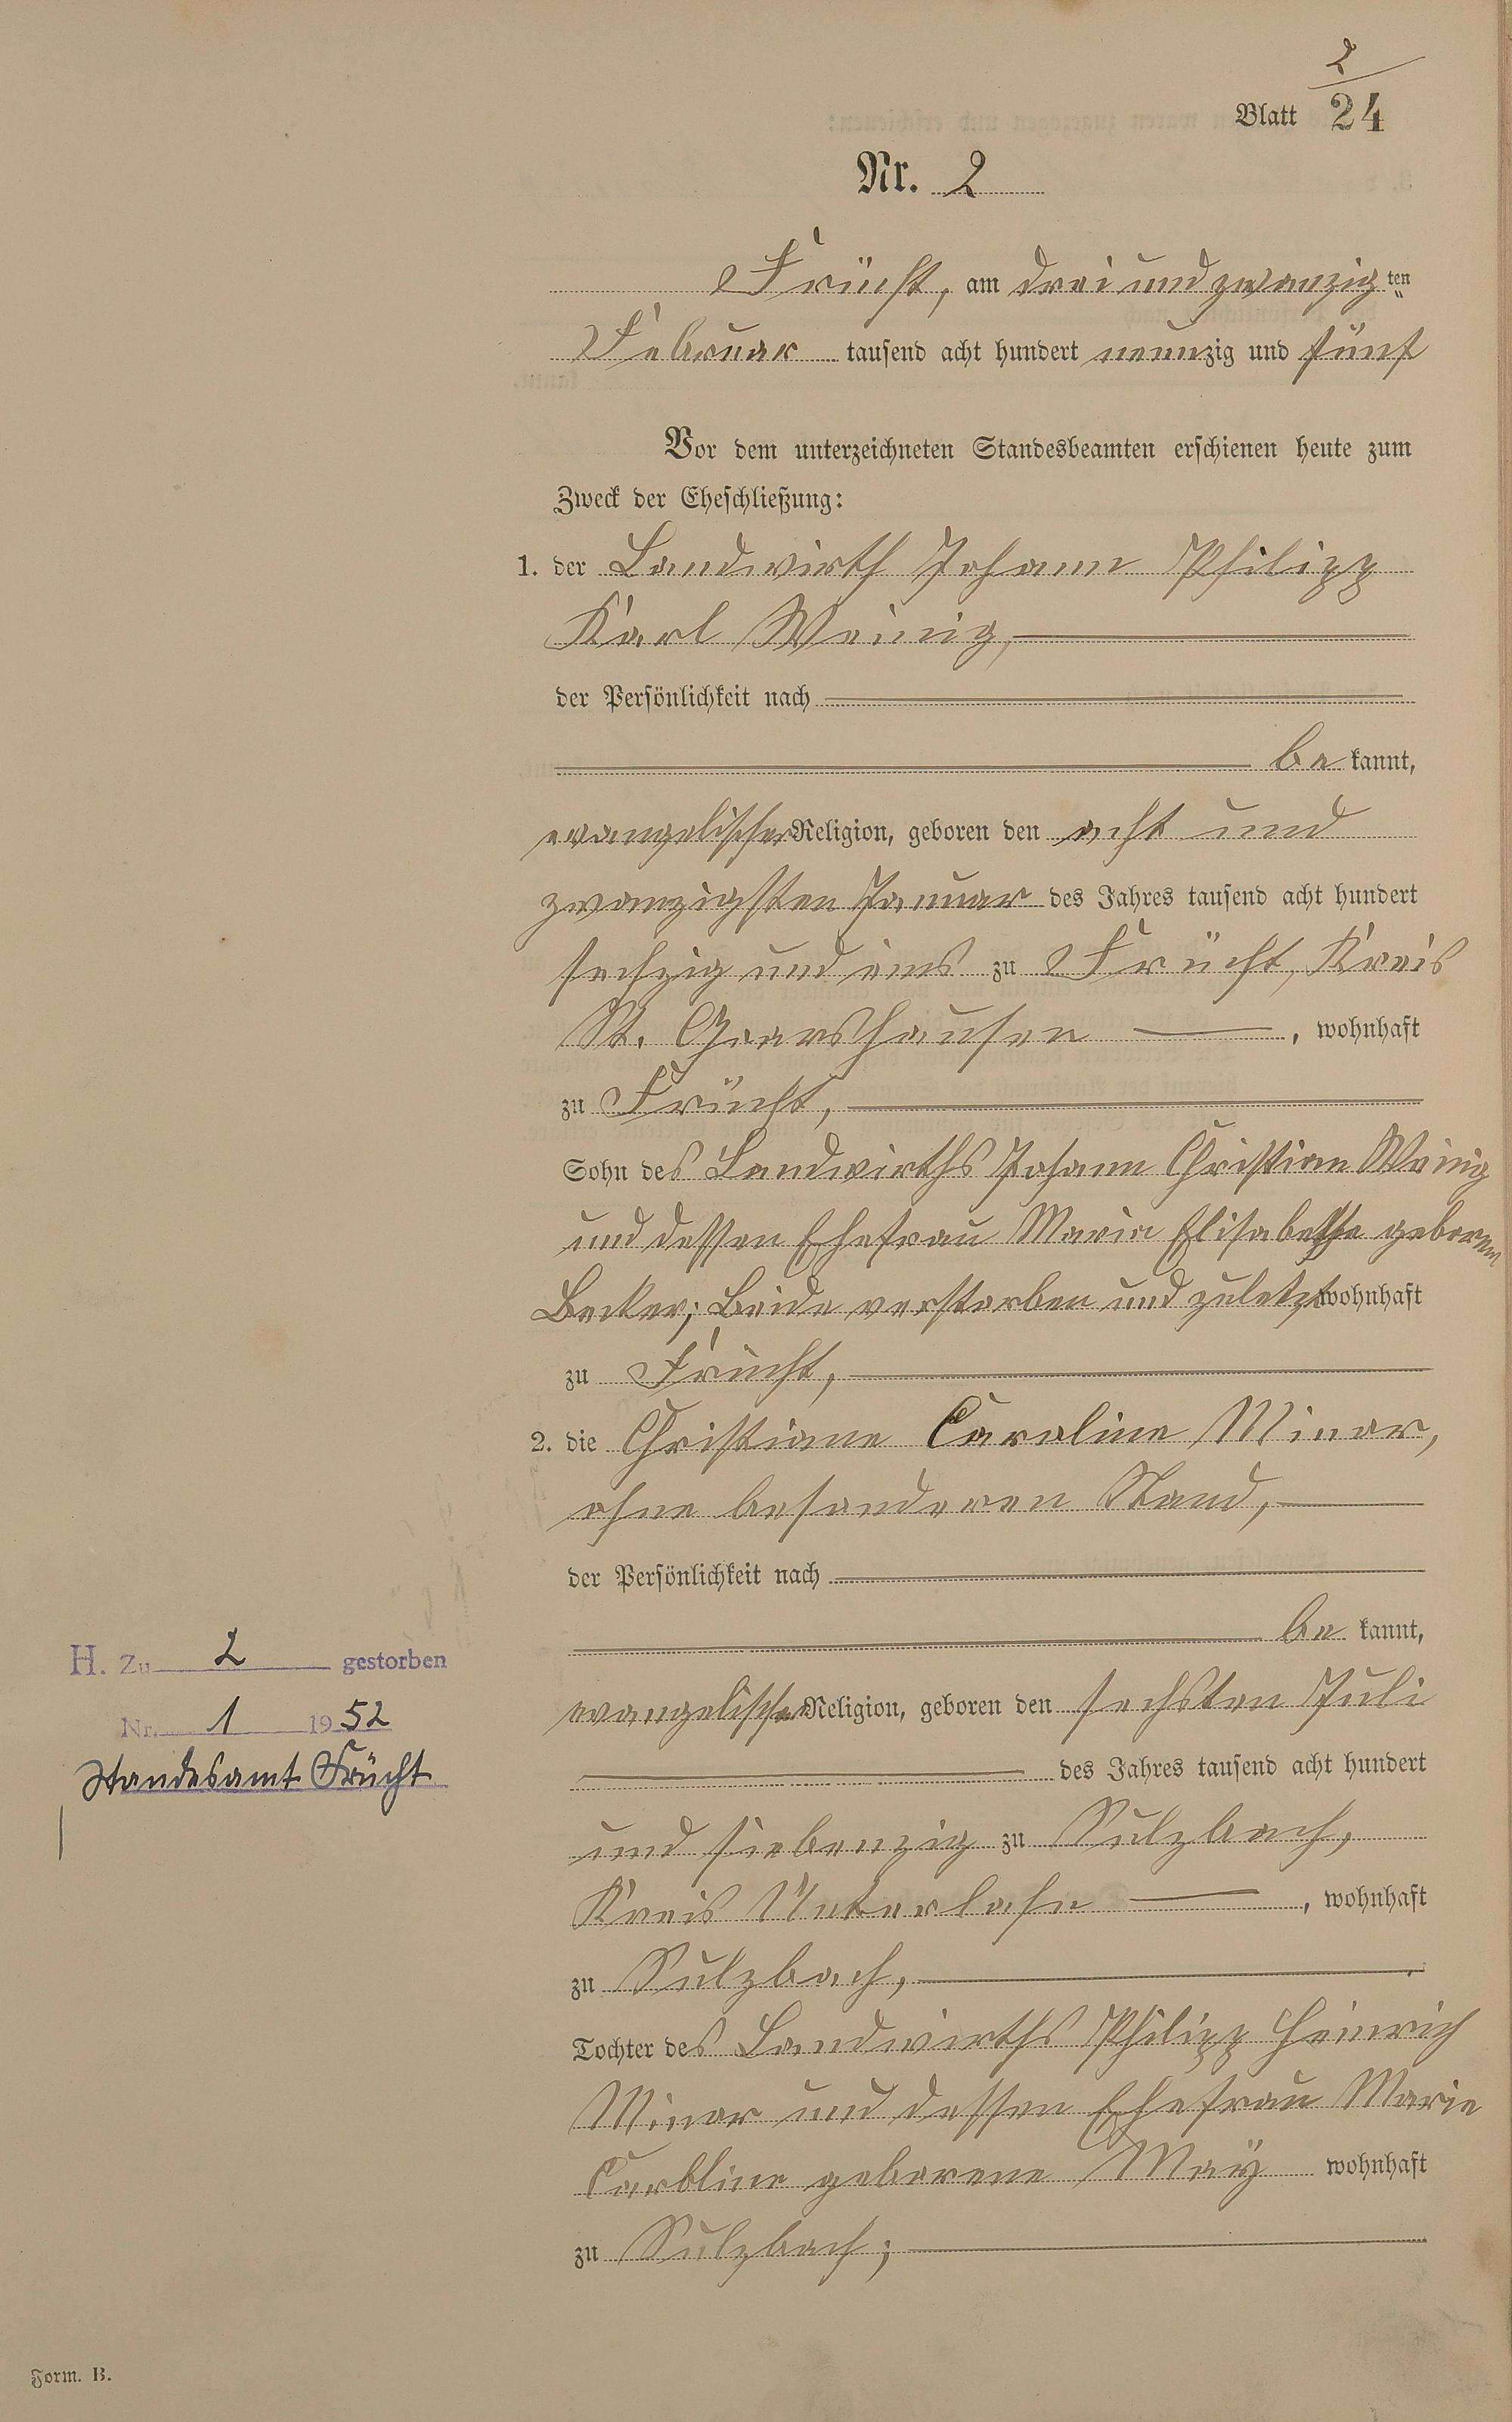 2
Blatt 24
Nr. 2
Frücht, am drei und zwanzig ten
Februar tausend acht hundert neunzig und fünf
Vor dem unterzeichneten Standesbeamten erschienen heute zum
Zweck der Eheschließung:
1. der Landwirth Johann Philipp
Karl Weinig,
der Persönlichkeit nach
be kannt,
evangelischer Religion, geboren den acht und
zwanzigsten Januar des Jahres tausend acht hundert
sechzig und eins zu Frücht, Kreis
St. Goarshausen, wohnhaft
zu Frücht,
Sohn des Landwirths Johann Christian Weinig
und dessen Ehefrau Maria Elisabethe geborenen
Becker; Beide verstorben und zuletzt wohnhaft
zu Frücht,
2. die Christiane Caroline Minor,
ohne besonderen Stand,
der Persönlichkeit nach
be kannt,
evangelischer Religion, geboren den sechsten Juli
des Jahres tausend acht hundert
und siebenzig zu Sulzbach,
Kreis Unterlahn, wohnhaft
zu Sulzbach,
Tochter des Landwirths Philipp Heinrich
Minor und dessen Ehefrau Marie
Caroline geborene May wohnhaft
zu Sulzbach;
H. Zu 2 gestorben
Nr. 1 1952
Standesamt Frücht
Form. B.